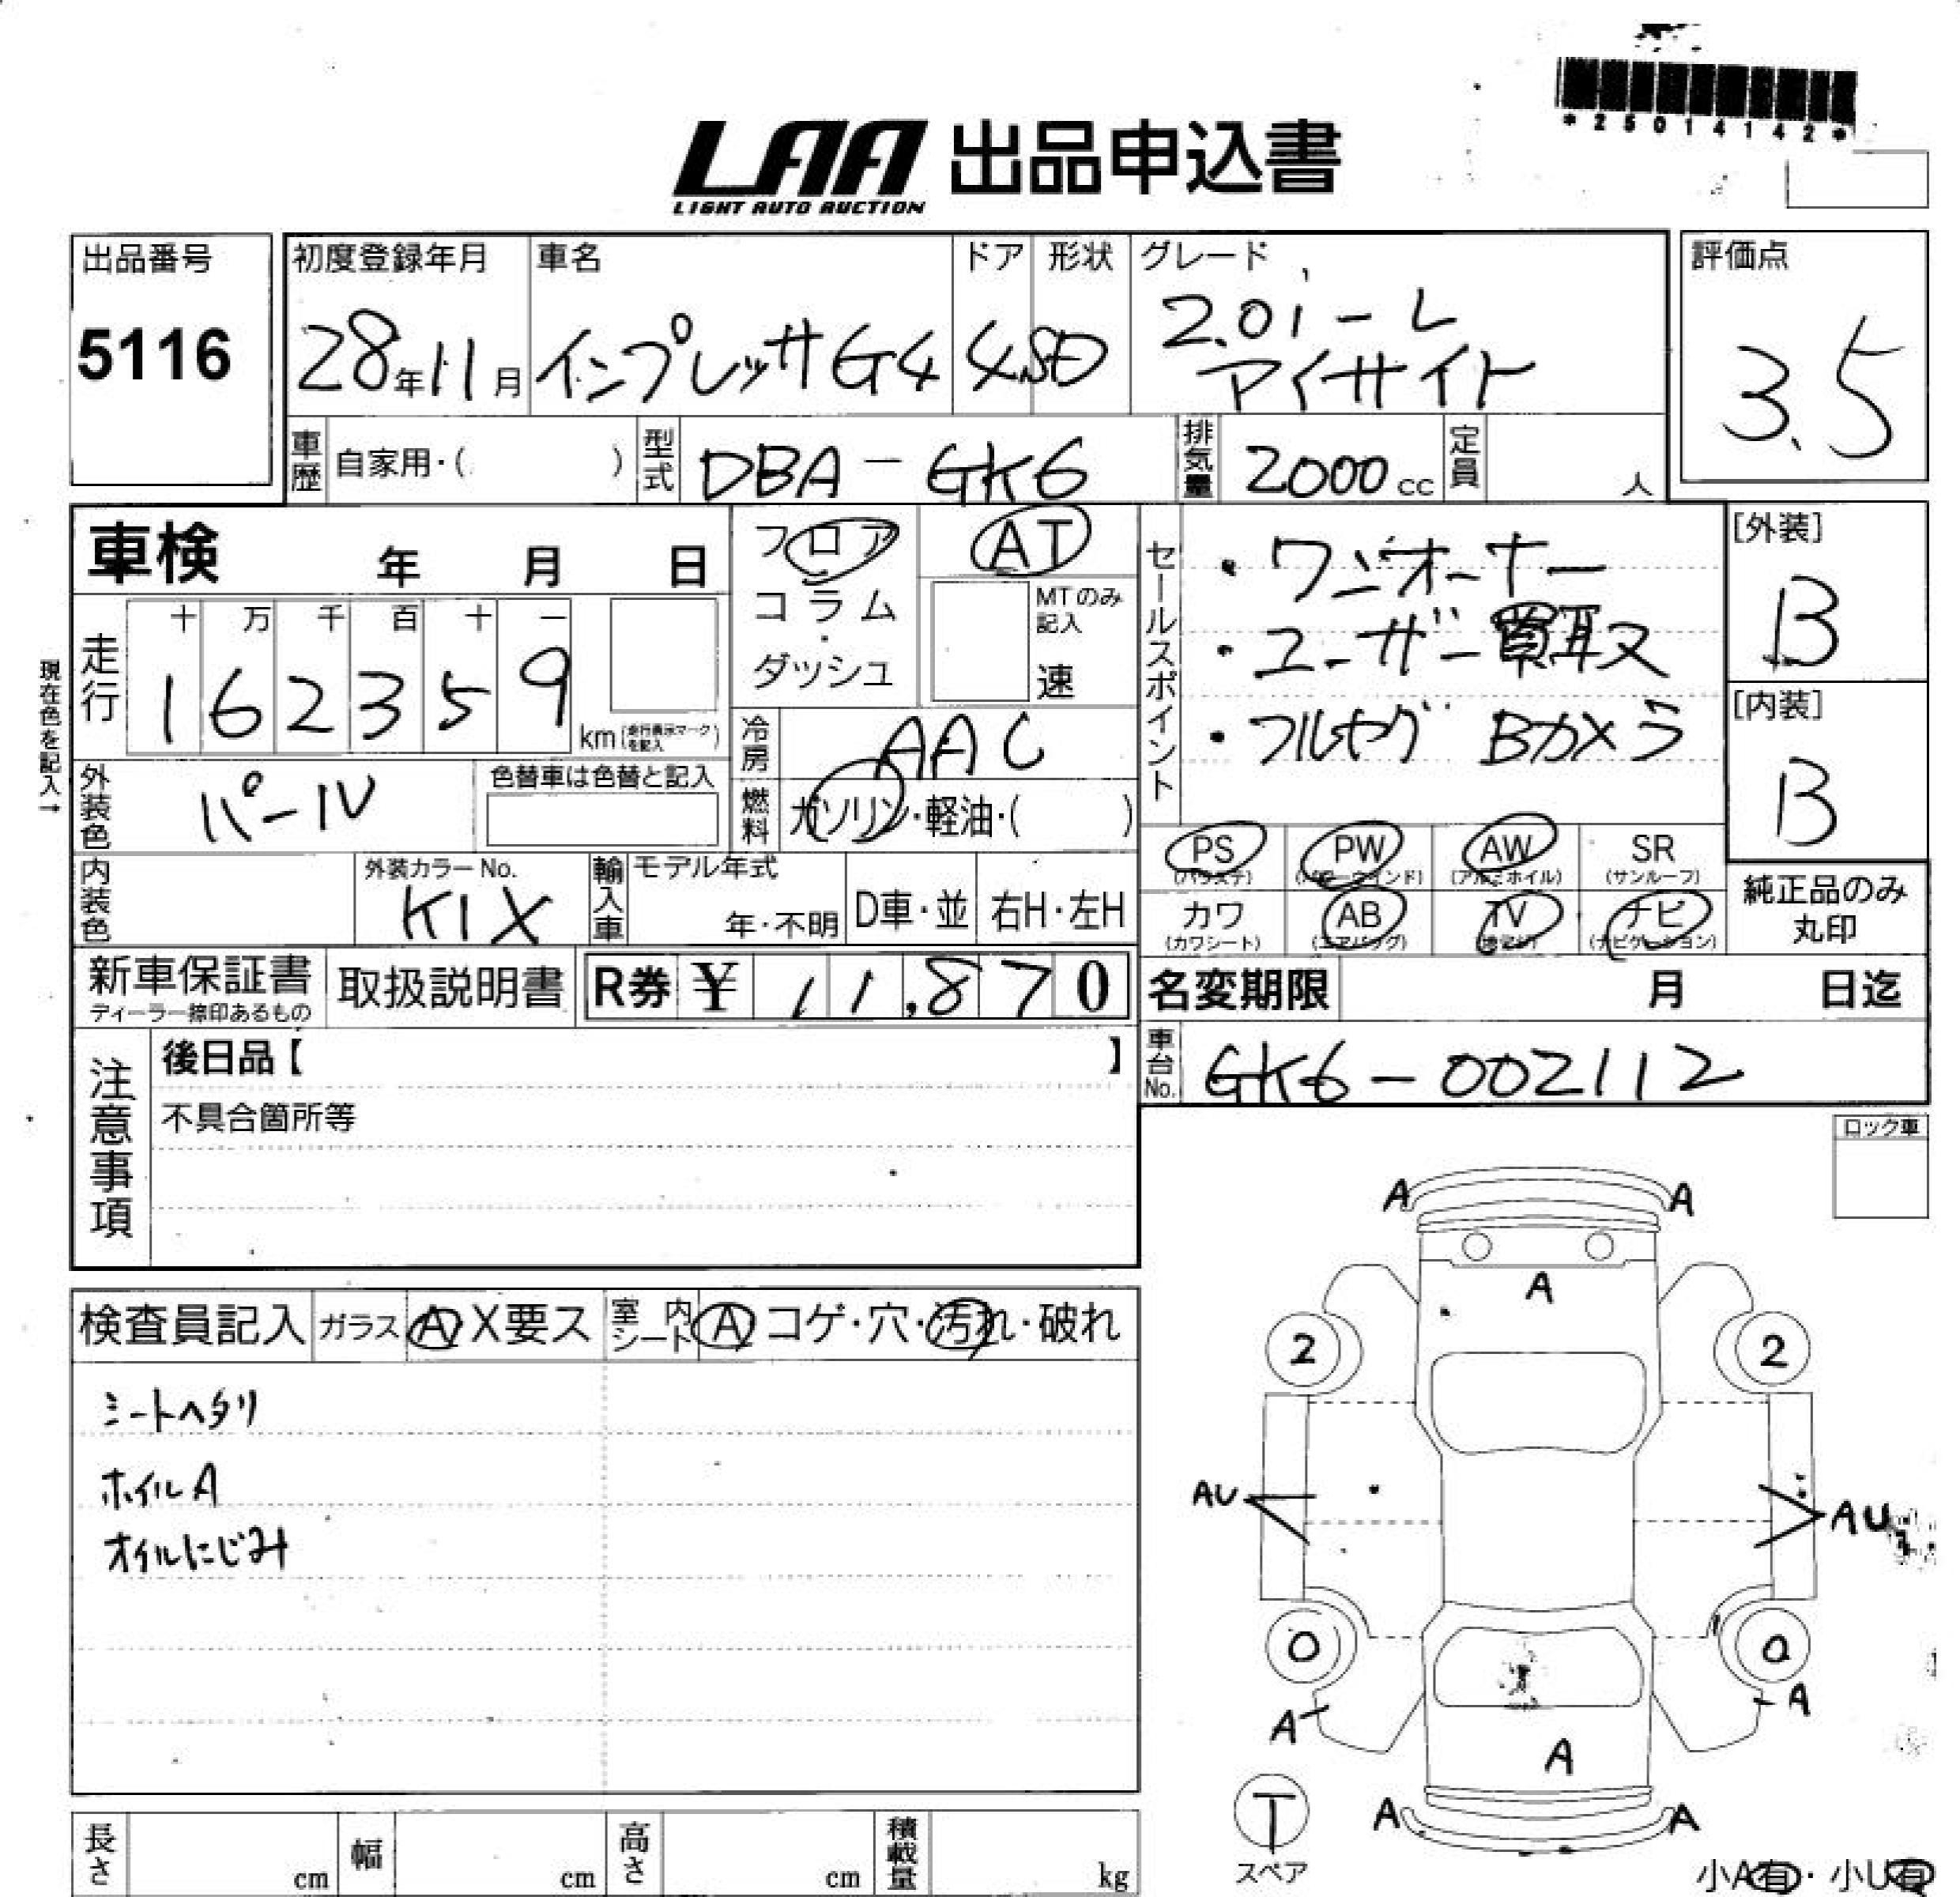 *25014142*
LAA 出品申込書
LIGHT AUTO AUCTION
出品番号
5116
初度登録年月
28年11月
車名
インプレッサG4
ドア
4
形状
SD
グレード
2.0i-L
アイサイト
評価点
3.5
車歴 自家用・( )
型式 DBA-GK6
排気量 2000cc
定員 人
車検 年 月 日
フロア
コラム
・
ダッシュ
AT
MTのみ
記入
速
セールスポイント
・ワンオーナー
・ユーザー買取
・フルセグ Bカメラ
[外装]
B
[内装]
B
現在色を記入→
走行
十 万 千 百 十 一
1 6 2 3 5 9
km(走行表示マークを記入)
冷房 AAC
燃料 ガソリン・軽油・( )
外装色 パール
色替車は色替と記入
内装色
外装カラーNo.
K1X
輸入車
モデル年式
年・不明
D車・並
右H・左H
PS
(パワステ)
PW
(パワーウインド)
AW
(アルミホイル)
SR
(サンルーフ)
カワ
(カワシート)
AB
(エアバッグ)
TV
ナビ
(ナビゲーション)
純正品のみ
丸印
新車保証書
ディーラー捺印あるもの
取扱説明書
R券 ¥ 11,870
名変期限 月 日迄
車台No. GK6-002112
注意事項
後日品【 】
不具合箇所等
ロック車
検査員記入
ガラス A X要ス
室内シート A コゲ・穴・汚れ・破れ
シートヘタリ
ホイルA
オイルにじみ
A A
A
2 2
AU AU
0 0
A A
A
A A
T
スペア
小A有・小U有
長さ cm
幅 cm
高さ cm
積載量 kg